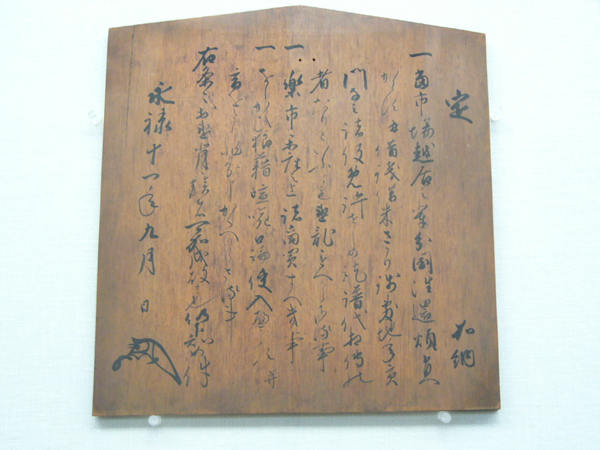 定 加納
一當市場越居之輩分国往還煩有
へからす并借銭借米さかり銭敷地年貢
門なみ諸役免許せしめ訖譜代相伝の
者たりといふとも違乱すへからさる事
一楽市楽座之上諸商買すへき事
一をしかひ狼藉喧嘩口論使入へからす并
宿をとり非分申かくへからさる事
右条々於違背之族者可加成敗者也仍下知如件
永禄十一年九月 日